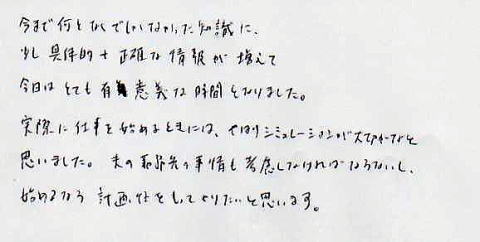 今まで何となくでしかなかった知識に、
少し具体的+正確な情報が増えて
今日はとても有意義な時間となりました。
実際に仕事を始めるときには、やはりシミュレーションが大切かなと
思いました。夫の の事情も考慮しなければならないし、
始めるなら計画性をもってやりたいと思います。